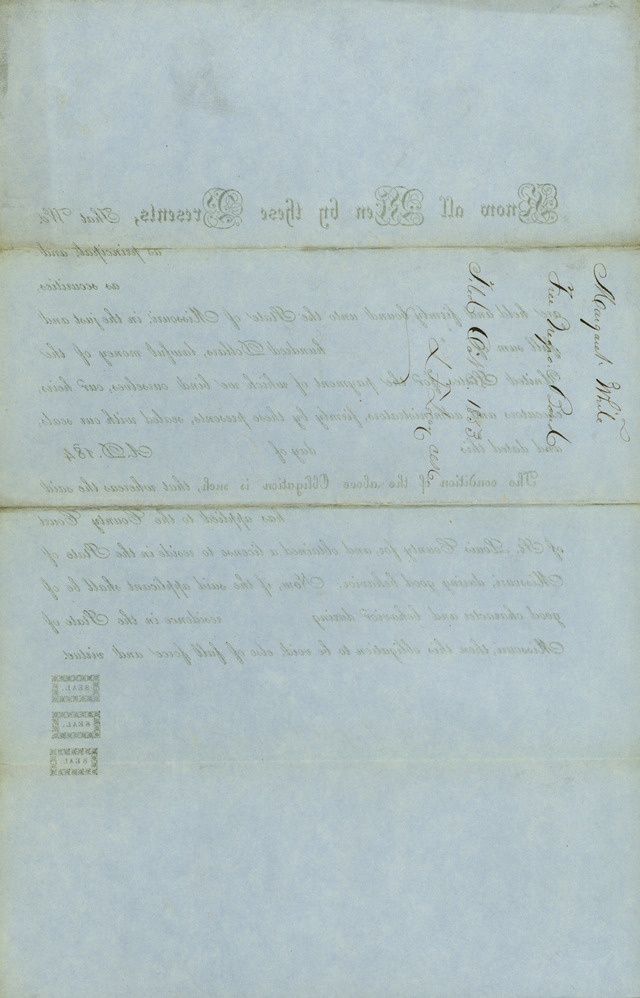 Margaret White
Free Negro Bond
Filed Oct 1853
Know all Men by these Presents, That We
as principal, and
as securities,
are held and firmly bound unto the State of Missouri, in the just and
full sum hundred Dollars, lawful money of the
United States, for the payment of which we bind ourselves, our heirs,
executors and administrators, firmly by these presents, sealed with our seals,
and dated this day of A.D. 184
The condition of the above Obligation is such, that whereas the said
has applied to the County Court
of St. Louis County for, and obtained a license to reside in the State of
Missouri, during good behavior. Now, if the said applicant shall be of
good character and behavior during residence in the State of
Missouri, then this obligation to be void, else of full force and virtue.
SEAL
SEAL
SEAL